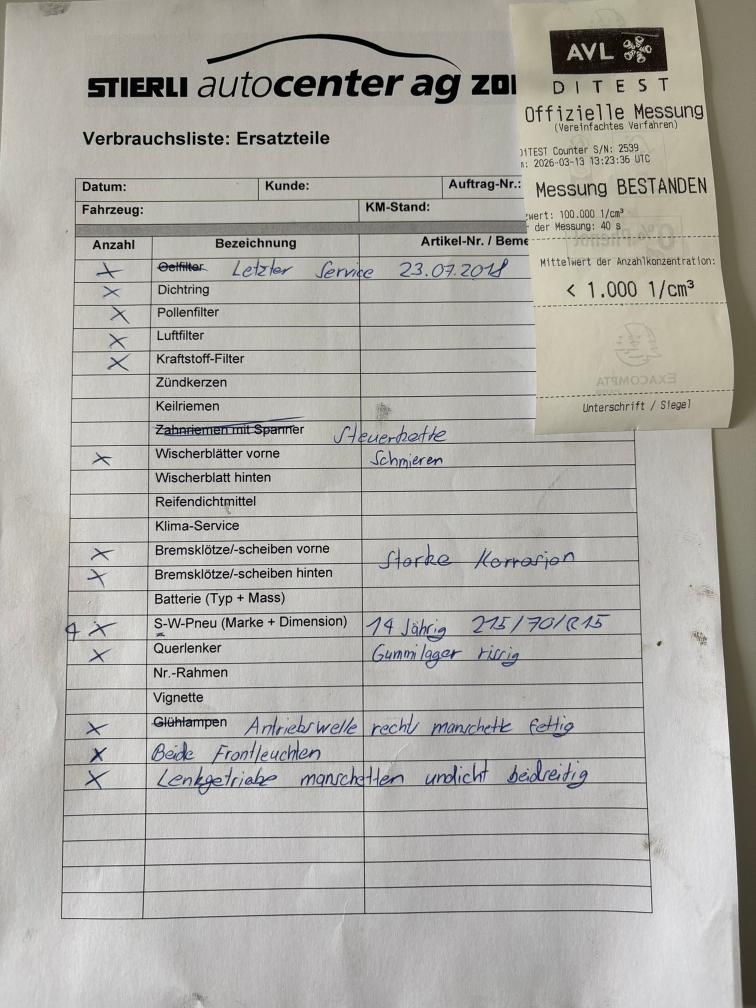 STIERLI autocenter ag
Verbrauchsliste: Ersatzteile
Datum: Kunde: Auftrag-Nr.:
Fahrzeug: KM-Stand:
Anzahl Bezeichnung Artikel-Nr. / Beme
X Oelfilter Letzter Service 23.07.2018
X Dichtring
X Pollenfilter
X Luftfilter
X Kraftstoff-Filter
Zündkerzen
Keilriemen
Zahnriemen mit Spanner Steuerkette
X Wischerblätter vorne Schmieren
Wischerblatt hinten
Reifendichtmittel
Klima-Service
X Bremsklötze/-scheiben vorne Starke Korrosion
X Bremsklötze/-scheiben hinten
Batterie (Typ + Mass)
4 X S-W-Pneu (Marke + Dimension) 14 Jährig 215/70/R15
X Querlenker Gummilager rissig
Nr.-Rahmen
Vignette
X Glühlampen Antriebswelle rechts manschette fettig
X Beide Frontleuchten
X Lenkgetriebe manschetten undicht beidseitig
AVL
DITEST
Offizielle Messung
(Vereinfachtes Verfahren)
DiTEST Counter S/N: 2539
: 2026-03-13 13:23:36 UTC
Messung BESTANDEN
wert: 100.000 1/cm³
der Messung: 40 s
Mittelwert der Anzahlkonzentration:
< 1.000 1/cm³
EXACOMPTA
Unterschrift / Siegel